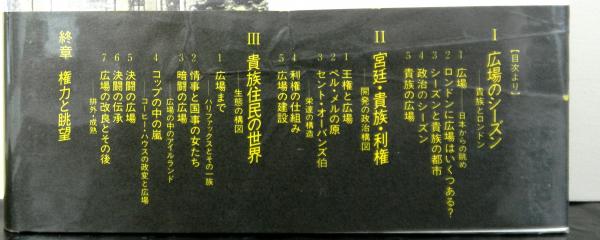 【目次より】
I 広場のシーズン
貴族とロンドン
1 広場──日本からの眺め
2 ロンドンに広場はいくつある?
3 シーズンと貴族の都市
4 政治のシーズン
5 貴族の広場
II 宮廷・貴族・利権
──開発の政治構図
1 王権と広場
2 ペル・メルの原
3 セント・オーバンズ伯
──栄達の構造
4 利権の仕組み
5 広場の建設
III 貴族住民の世界
生態の構図
1 広場まで
──ハリファックスとその一族
2 情事と国事の女たち
3 暗闘の広場
──広場の中のアイルランド
4 コップの中の嵐
──コーヒー・ハウスの政変と広場
5 決闘の広場
6 決闘の伝承
7 広場の改良とその後
──排外・成熟
終章 権力と眺望